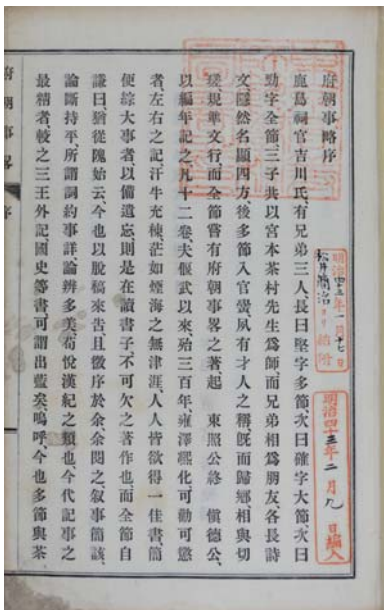 府朝事略序
鹿島祠官吉川氏、有兄弟三人、長曰堅字多節、次曰確字大節、次曰
勁字全節、三子共以宮本茶村先生爲師、而兄弟相爲朋友、各長詩
文、隱然名顯四方、後多節入官黌、夙有才人之稱、旣而歸鄕、相與切
磋、規準文行、而全節嘗有府朝事畧之著、起 東照公終 愼德公、
以編年記之、凡十二卷、夫偃武以來、殆三百年、雍澤熙化、可勸可懲
者、左右之記、汗牛充棟、茫如煙海之無津涯、人人皆欲得一佳書、簡
便綜大事者、以備遺忘、則是在讀書子、不可欠之著作也、而全節自
謙曰、猶從隗始云、今也以脫稿來吿、且徵序於余、余閱之、叙事簡該、
論斷持平、所謂詞約事詳、論辨多美、荀悅漢紀之類也、今代記事之
最精者、較之三王外記國史等書、可謂出藍矣、嗚呼、今也多節與茶
府朝事畧 序
明治四十三年一月十七日
松井簡治ヨリ 納附
明治四十三年二月九日編入